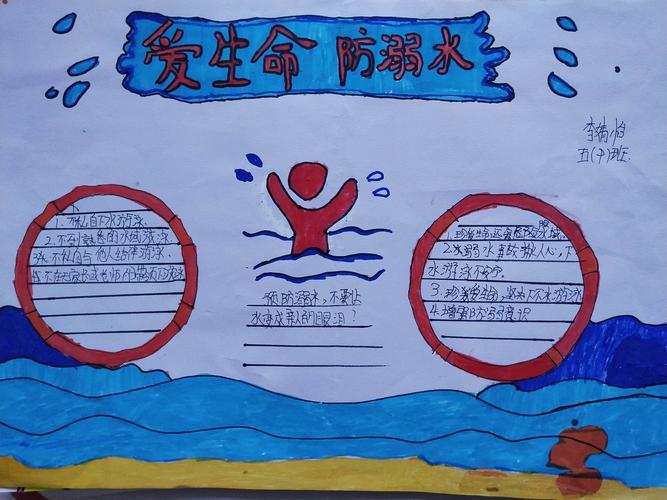 爱生命 防溺水
李婧怡
五(十)班
1. 不私自下水游泳.
2. 不到熟悉的水域游泳
3. 不私自与他人结伴游泳.
4. 不在无家长或老师带领下游泳
预防溺水,不要让
水变成亲人的眼泪?
1. 珍爱生命远离危险水域
2. 溺水事故揪人心,下
水游泳不
3. 珍爱生命,坚决不下水游泳
4. 增强防溺意识